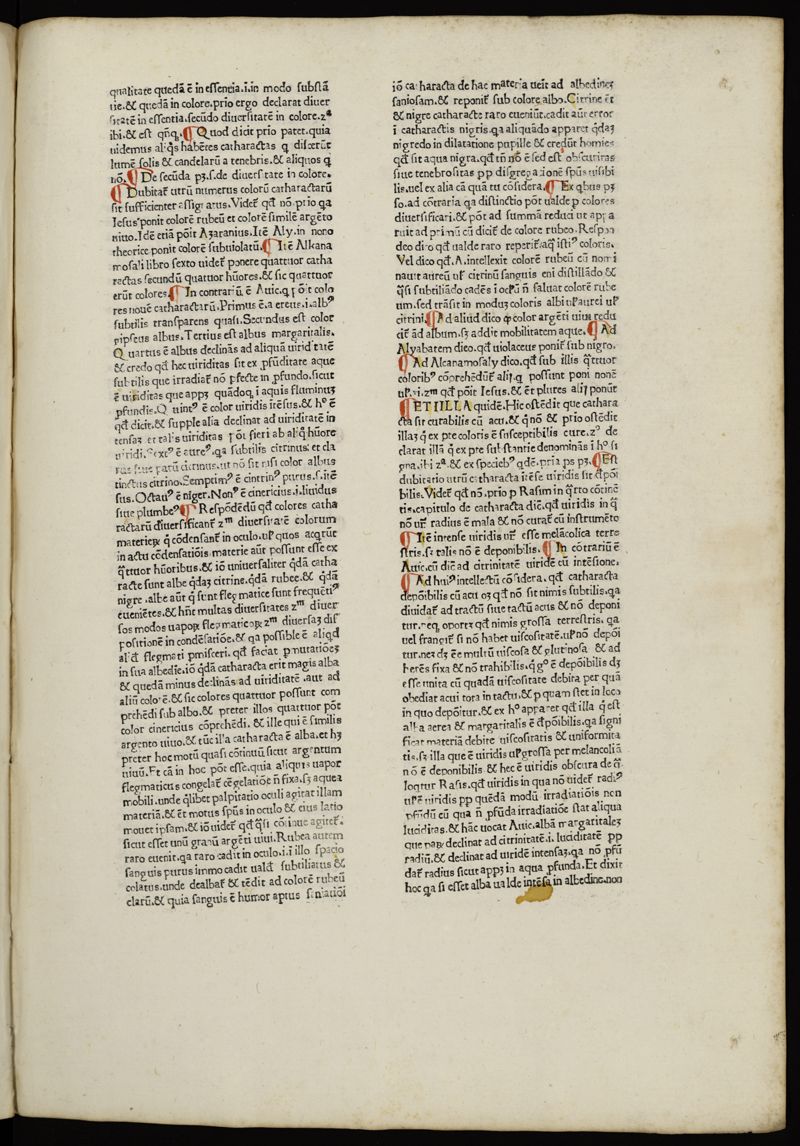 qualitate quedā ē in essentia.i.in modo substā
tie.& quedā in colore.prio ergo declarat diuer
sitatē in essentia.secūdo diuersitatē in colore.zª
ibi.& est qñq̨.¶ Quod dicit prio patet.quia
uidemus aliq̄s habētes catharactas q discernūt
lumē solis & candelarū a tenebris.& aliquos q
nō.¶ De secūda pȝ.s.de diuersitate in colore.
¶ Dubitat̄ utrū numerus colorū catharactarū
sit sufficienter assignatus.Videt̄ qđ nō prio qa
Iesus ponit colorē rubeū et colorē similē argēto
uiuo.Idē etiā pōit Azaranius.Itē Aly.in nono
theorice ponit colorē subuiolatū.¶ Itē Alkana
mosali libro sexto uidet̄ ponere quattuor catha
ractas secundū quattuor hūores.& sic quattuor
erūt colores.¶ In contrariū ē Auic.q pōit colo
res nouē catharactarū.Primus ē.aereus.i.alb⁹
subtilis transparens quasi.Secundus est color
gipseus albus.Tertius est albus margaritalis.
Quartus ē albus declinās ad aliquā uiriditatē
& credo qđ hec uiriditas fit ex pfūditate aque
subtilis que irradiat̄ nō pfecte in pfundo.sicut
ē uiriditas que appȝ quādoq̨ i aquis fluminuȝ
pfundis.Quint⁹ ē color uiridis itēsus.& h⁰ ē
qđ dicit.& supple alia declinat ad uiriditatē in
tensaȝ et talis uiriditas pōt fieri ab aliq̄ hūore
uiridi.Sext⁹ ē aure⁹.qa subtilis citrinus et cla
rus siue parū citrinus.ut nō sit nisi color albus
tinctus citrino.Septim⁹ ē citrin⁹ purus.s.itē
sus.Octau⁹ ē niger.Non⁹ ē cinericius.i.liuidus
siue plumbe⁹.¶ Respōdēdū qđ colores catha
ractarū diuersificant̄ zᵐ diuersitatē colorum
materieꝝ q cōdensant̄ in oculo.uꝉ quos acq̄rūt
in actu cōdensatiōis materie aūt possunt esse ex
q̄ttuor hūoribus.& iō uniuersaliter q̄dā catha
racte sunt albe q̄daȝ citrine.q̄dā rubee.& q̄dā
nigre.albe aūt q sunt flegmatice sunt frequēti⁹
eueniētes.& hñt multas diuersitates zᵐ diuer
sos modos uapoꝝ flegmaticoꝝ zᵐ diuersaȝ dis
positionē in condēsatiōe.& qa possibile ē aliq̄d
aliđ flegmati pmisceri.qđ faciat pmutatiōeȝ
in sua albedie.iō q̄dā catharacta erit magis alba
& quedā minus declinās ad uiriditatē.aut ad
aliū colorē.& sic colores quattuor possunt com
prehēdi sub albo.& preter illos quattuor pōt
color cinericius cōprehēdi.& ille qui ē similis
argento uiuo.& tūc illa catharacta ē alba.et hȝ
preter hoc motū quasi cōtinuū sicut argentum
uiuū.Et cā in hoc pōt esse.quia aliquis uapor
flegmaticus congelat̄ cōgelatiōe ñ fixa.sȝ aquea
mobili.unde q̄libet palpitatio oculi agitat illam
materiā.& ēt motus spūs in oculo & eius latio
mouet ipsam.& iō uidet̄ qđ q̄si cōtinue agitet̄.
sicut esset unū granū argēti uiui.Rubea autem
raro euenit.qa raro cadit in oculo.i.i illo spacio
sanguis purus immo cadit ualđ subtiliatus &
colatus.unde dealbat̄ & tēdit ad colorē rubeū
clarū.& quia sanguis ē humor aptus
iō catharacta de hac materia ueit ad albedineȝ
saniosam.& reponit̄ sub colore albo.Citrine ēt
& nigre catharacte raro eueniūt.cadit aūt error
i catharactis nigris.qa aliquādo apparet q̄daȝ
nigredo in dilatatione pupille & credūt homies
qđ sit aqua nigra.qđ tñ nō ē sed est obscuritas
siue tenebrositas pp disgregationē spūs uisibi
lis.uel ex alia cā quā tu cōsidera.¶ Ex qbus pȝ
so.ad cōtraria qa distinctio pōt ualde p colores
diuersificari.& pōt ad summā reduci ut appa
ruit ad primū cū dicit̄ de colore rubeo.Respon
deo dico qđ ualde raro reperit̄ aq̄ isti⁹ coloris.
Vel dico qđ.A.intellexit colorē rubeū cū nomi
nauit aureū uꝉ citrinū sanguis eni distillādo &
q̄si subtiliādo cadēs i oclm̄ ñ saluat colorē rube
um.sed trāsit in moduȝ coloris albi uꝉ aurei uꝉ
citrini.¶ Ad aliud dico ꝙ color argēti uiui redu
cit̄ ad album.sȝ addit mobilitatem aque.¶ Ad
Alyabatem dico.qđ uiolaceus ponit̄ sub nigro.
¶ Ad Alcanamosaly dico.qđ sub illis q̄ttuor
colorib⁹ cōprehēdūt̄ alii.q possunt poni nouē
uꝉ.vi.zᵐ qđ pōit Iesus.& ēt plures alii ponūt
¶ ET ILLA quidē.Hic ostēdit que cathara
cta sit curabilis cū acu.& q nō & prio ostēdit
illaȝ q ex pte coloris ē susceptibilis cure.z⁰ de
clarat illā q ex pte substantie denominās i h⁰ si
gna.ibi zª.& ex speciebȝ q̄dē.pria ps pȝ.¶ Est
dubitatio utrū catharacta itēse uiridis sit dpōi
bilis.Videt̄ qđ nō.prio p Rasim in q̄rto cōtinē
tis.capitulo de catharacta diē.qđ uiridis in q̄
nō uit̄ radius ē mala & nō curat̄ cū instrumēto
¶ Itē intense uiridis uit̄ esse melācolica terre
stris.sȝ talis nō ē deponibilis.¶ In cōtrariū ē
Auic.cū dic̄ ad citrinitatē uiridē cū intēsione.
¶ Ad hui⁹ intellectū cōsidera.qđ catharacta
depōibilis cū acu oȝ qđ nō sit nimis subtilis.qa
diuidat̄ ad tractū siue tactū acus & nō deponi
tur.neq̨ oportȝ qđ nimis grossa terrestris.qa
uel frangit̄ si nō habet uiscositatē.uꝉ nō depōi
tur.nec dȝ ēe multū uiscosa & glutinosa & ad
herēs fixa & nō trahibilis.q̄go ē depōibilis dȝ
esse unita cū quadā uiscositate debita per quā
obediat acui tota in tactu.& p quam stet in loco
in quo depōit̄ur.& ex h⁰ apparet qđ illa q̄ est
alba aerea & margaritalis ē dpōibilis.qa signi
ficat materiā debite uiscositatis & uniformita
tis.sȝ illa que ē uiridis uꝉ grossa per melancoliā
nō ē deponibilis.& hec ē uiridis obscura de q̄
loqtur Rasis.qđ uiridis in qua nō uidet̄ radi⁹
uꝉ ē uiridis pp quēdā modū irradiatiōis non
pfūdū cū qua ñ pfūda irradiatiōe stat aliqua
luciditas.& hāc uocat Auic.albā margaritaleȝ
que parū declinat ad citrinitatē.i.luciditatē pp
radiū.& declinat ad uiridē intensaȝ.qa nō pfū
dat̄ radius sicut appȝ in aqua pfunda.Et dixit
hoc qa si esset alba ualde intēsa in albedine.non